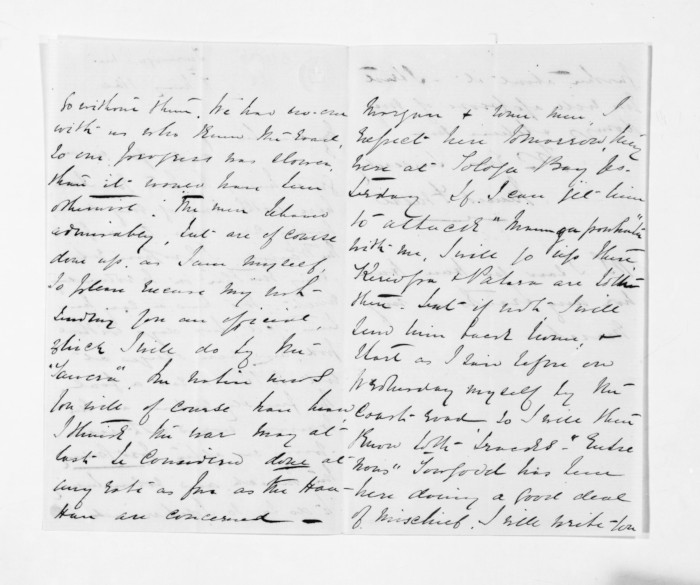 so without them. We had no-one
with us who knew the road,
so our progress was slower
than it would have been
otherwise. The men behaved
admirably, but are of course
done up. as I am myself,
so please excuse my not
sending you an official,
which I will do by the
" but native news
You will of course have heard
I think the war may at
last be considered done at
any rate as far as the Hau-
Haus are concerned —
Morgan & some men, I
expect here tomorrow, they
were at Tologa Bay yes-
terday If I can get him
to attack "
with me, I will go up there
Kereopa & Patara are both
there. but if not I will
send him back home, &
start as I said before on
Wednesday myself by the
coast road so I will then
know both "Entre
nous" Towgood has been
here doing a good deal
of mischief. I will write to you